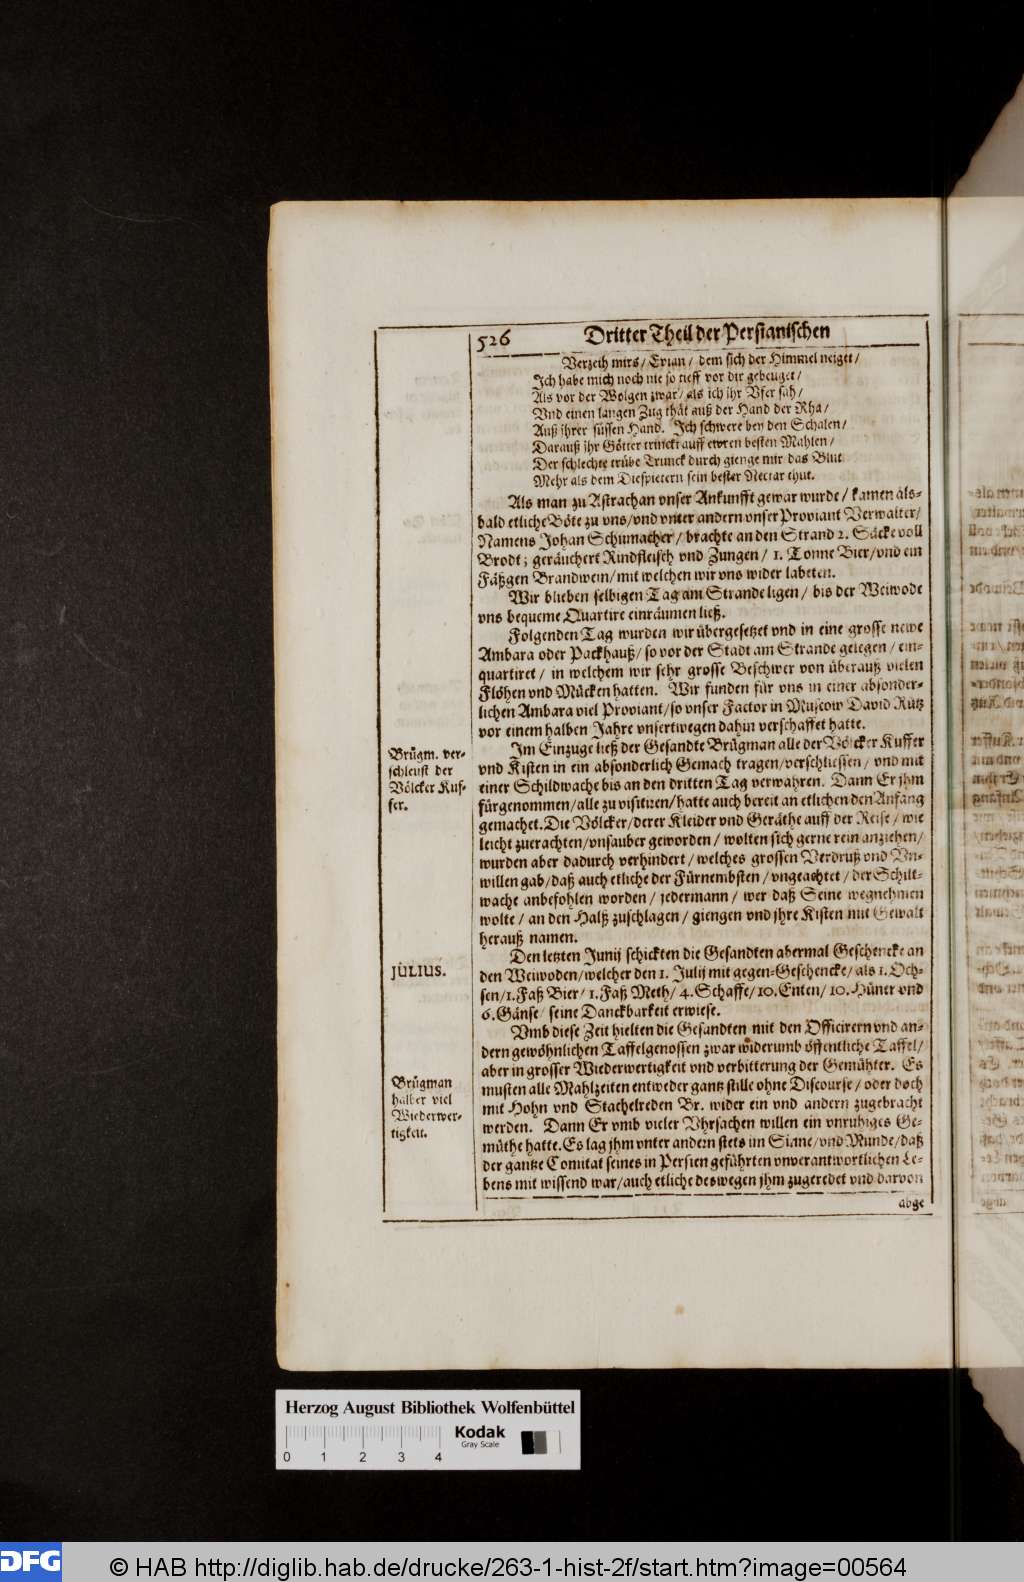 526 Dritter Theil der Persianischen
Verzeih mirs / Evian / dem sich der Himmel neiget /
Ich habe mich noch nie so tieff vor dir gebeuget /
Als vor der Wolgen zwar / als ich jhr Vfer sah /
Vnd einen langen Zug thät auß der Hand der Rha /
Auß jhrer süssen Hand. Ich schwere bey den Schalen /
Darauß jhr Götter trinckt auff ewren besten Mahlen /
Der schlechte trübe Trunck durch gienge mir das Blut
Mehr als dem Diespietern sein bester Nectar thut.
Als man zu Astrachan vnser Ankunfft gewar wurde / kamen als-
bald etliche Böte zu vns / vnd vnter andern vnser Proviant Verwalter /
Namens Johan Schumacher / brachte an den Strand 2. Säcke voll
Brodt; geräuchert Rindfleisch vnd Zungen / 1. Tonne Bier / vnd ein
Fäßgen Brandwein / mit welchen wir vns wider labeten.
Wir blieben selbigen Tag am Strande ligen / bis der Weiwode
vns bequeme Quartire einräumen ließ.
Folgenden Tag wurden wir übergesetzet vnd in eine grosse newe
Ambara oder Packhauß / so vor der Stadt am Strande gelegen / ein-
quartiret / in welchem wir sehr grosse Beschwer von überauß vielen
Flöhen vnd Mücken hatten. Wir funden für vns in einer absonder-
lichen Ambara viel Proviant / so vnser Factor in Muscow David Rütz
vor einem halben Jahre vnsertwegen dahin verschaffet hatte.
Brügm. ver-
schleust der
Völcker Kuf-
fer.
Im Einzuge ließ der Gesandte Brügman alle der Völcker Kuffer
vnd Kisten in ein absonderlich Gemach tragen / verschliessen / vnd mit
einer Schildwache bis an den dritten Tag verwahren. Dann Er jhm
fürgenommen / alle zu visitiren / hatte auch bereit an etlichen den Anfang
gemachet. Die Völcker / derer Kleider vnd Geräthe auff der Reise / wie
leicht zuerachten / vnsauber geworden / wolten sich gerne rein anziehen /
wurden aber dadurch verhindert / welches grossen Verdruß vnd Vn-
willen gab / daß auch etliche der Fürnembsten / vngeachtet / der Schilt-
wache anbefohlen worden / jedermann / wer daß Seine wegnehmen
wolte / an den Halß zuschlagen / giengen vnd jhre Kisten mit Gewalt
herauß namen.
JULIUS.
Den letzten Junij schickten die Gesandten abermal Geschencke an
den Weiwoden / welcher den 1. Julij mit gegen-Geschencke / als 1. Och-
sen / 1. Faß Bier / 1. Faß Meth / 4. Schaffe / 10. Enten / 10. Hüner vnd
6. Gänse / seine Danckbarkeit erwiese.
Vmb diese Zeit hielten die Gesandten mit den Officirern vnd an-
dern gewöhnlichen Taffelgenossen zwar widerumb öffentliche Taffel /
aber in grosser Wiederwertigkeit vnd verbitterung der Gemühter. Es
Brügman
halber viel
Wiederwer-
tigkeit.
musten alle Mahlzeiten entweder gantz stille ohne Discourse / oder doch
mit Hohn vnd Stachelreden Br. wider ein vnd andern zugebracht
werden. Dann Er vmb vieler Vhrsachen willen ein vnruhiges Ge-
müthe hatte. Es lag jhm vnter andern stets im Sinne / vnd Munde / daß
der gantze Comitat seines in Persien geführten vnverantwortlichen Le-
bens mit wissend war / auch etliche deswegen jhm zugeredet vnd darvon
abge
Herzog August Bibliothek Wolfenbüttel
Kodak
Gray Scale
0 1 2 3 4
DFG © HAB http://diglib.hab.de/drucke/263-1-hist-2f/start.htm?image=00564